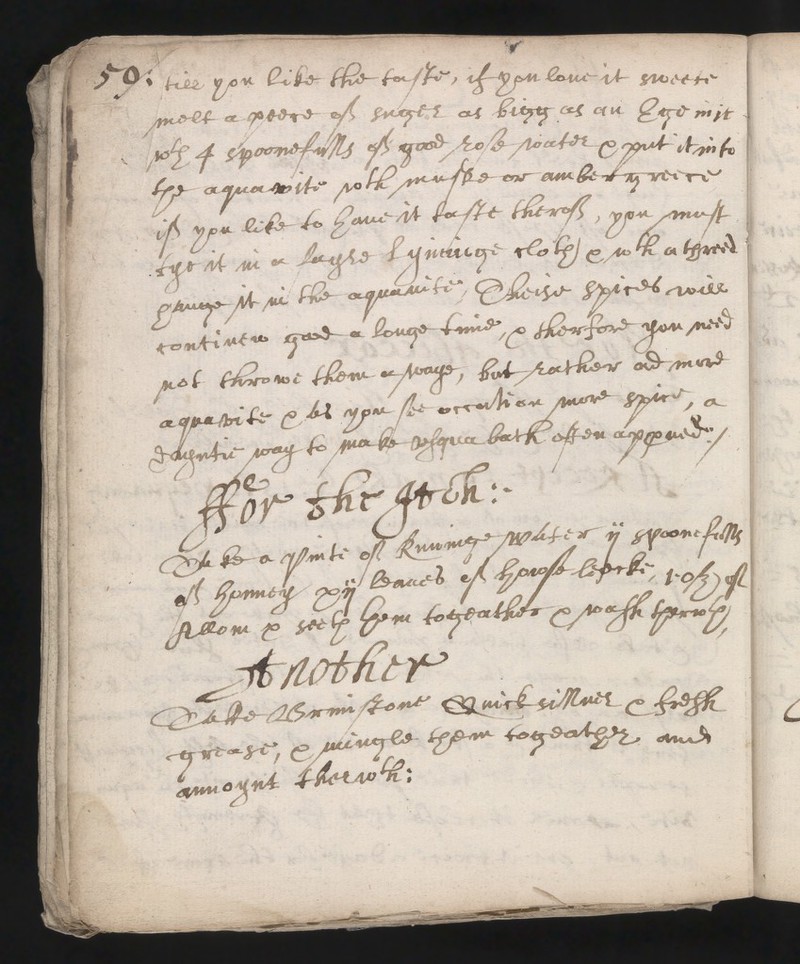 59: till you like the taste, if you love it sweete
melt a peece of suger as bigg as an Ege in it
wth 4 spoonefulls of good rose water & put it into
the aquavite wth muske or ambergreece
if you like to have it taste therof, you must
tye it in a layre lynninge cloth & wth a threed
hange it in the aquavite, Theise spices will
continew good a longe time, & therfore you need
not throwe them awaye, but rather ad more
aquavite & as you see occation more spice, a
dayntie way to make usquabath often approued:/
ffor the Itch:-
Take a pinte of Runinge water ij spoonefulls
of honney xij leaves of howse leecke, 1 of
Allom & seeth them togeather & wash therwth,
Another
Take Brimstone Quicksillver & fresh
grease, & mingle them togeather and
annoynt therwth: